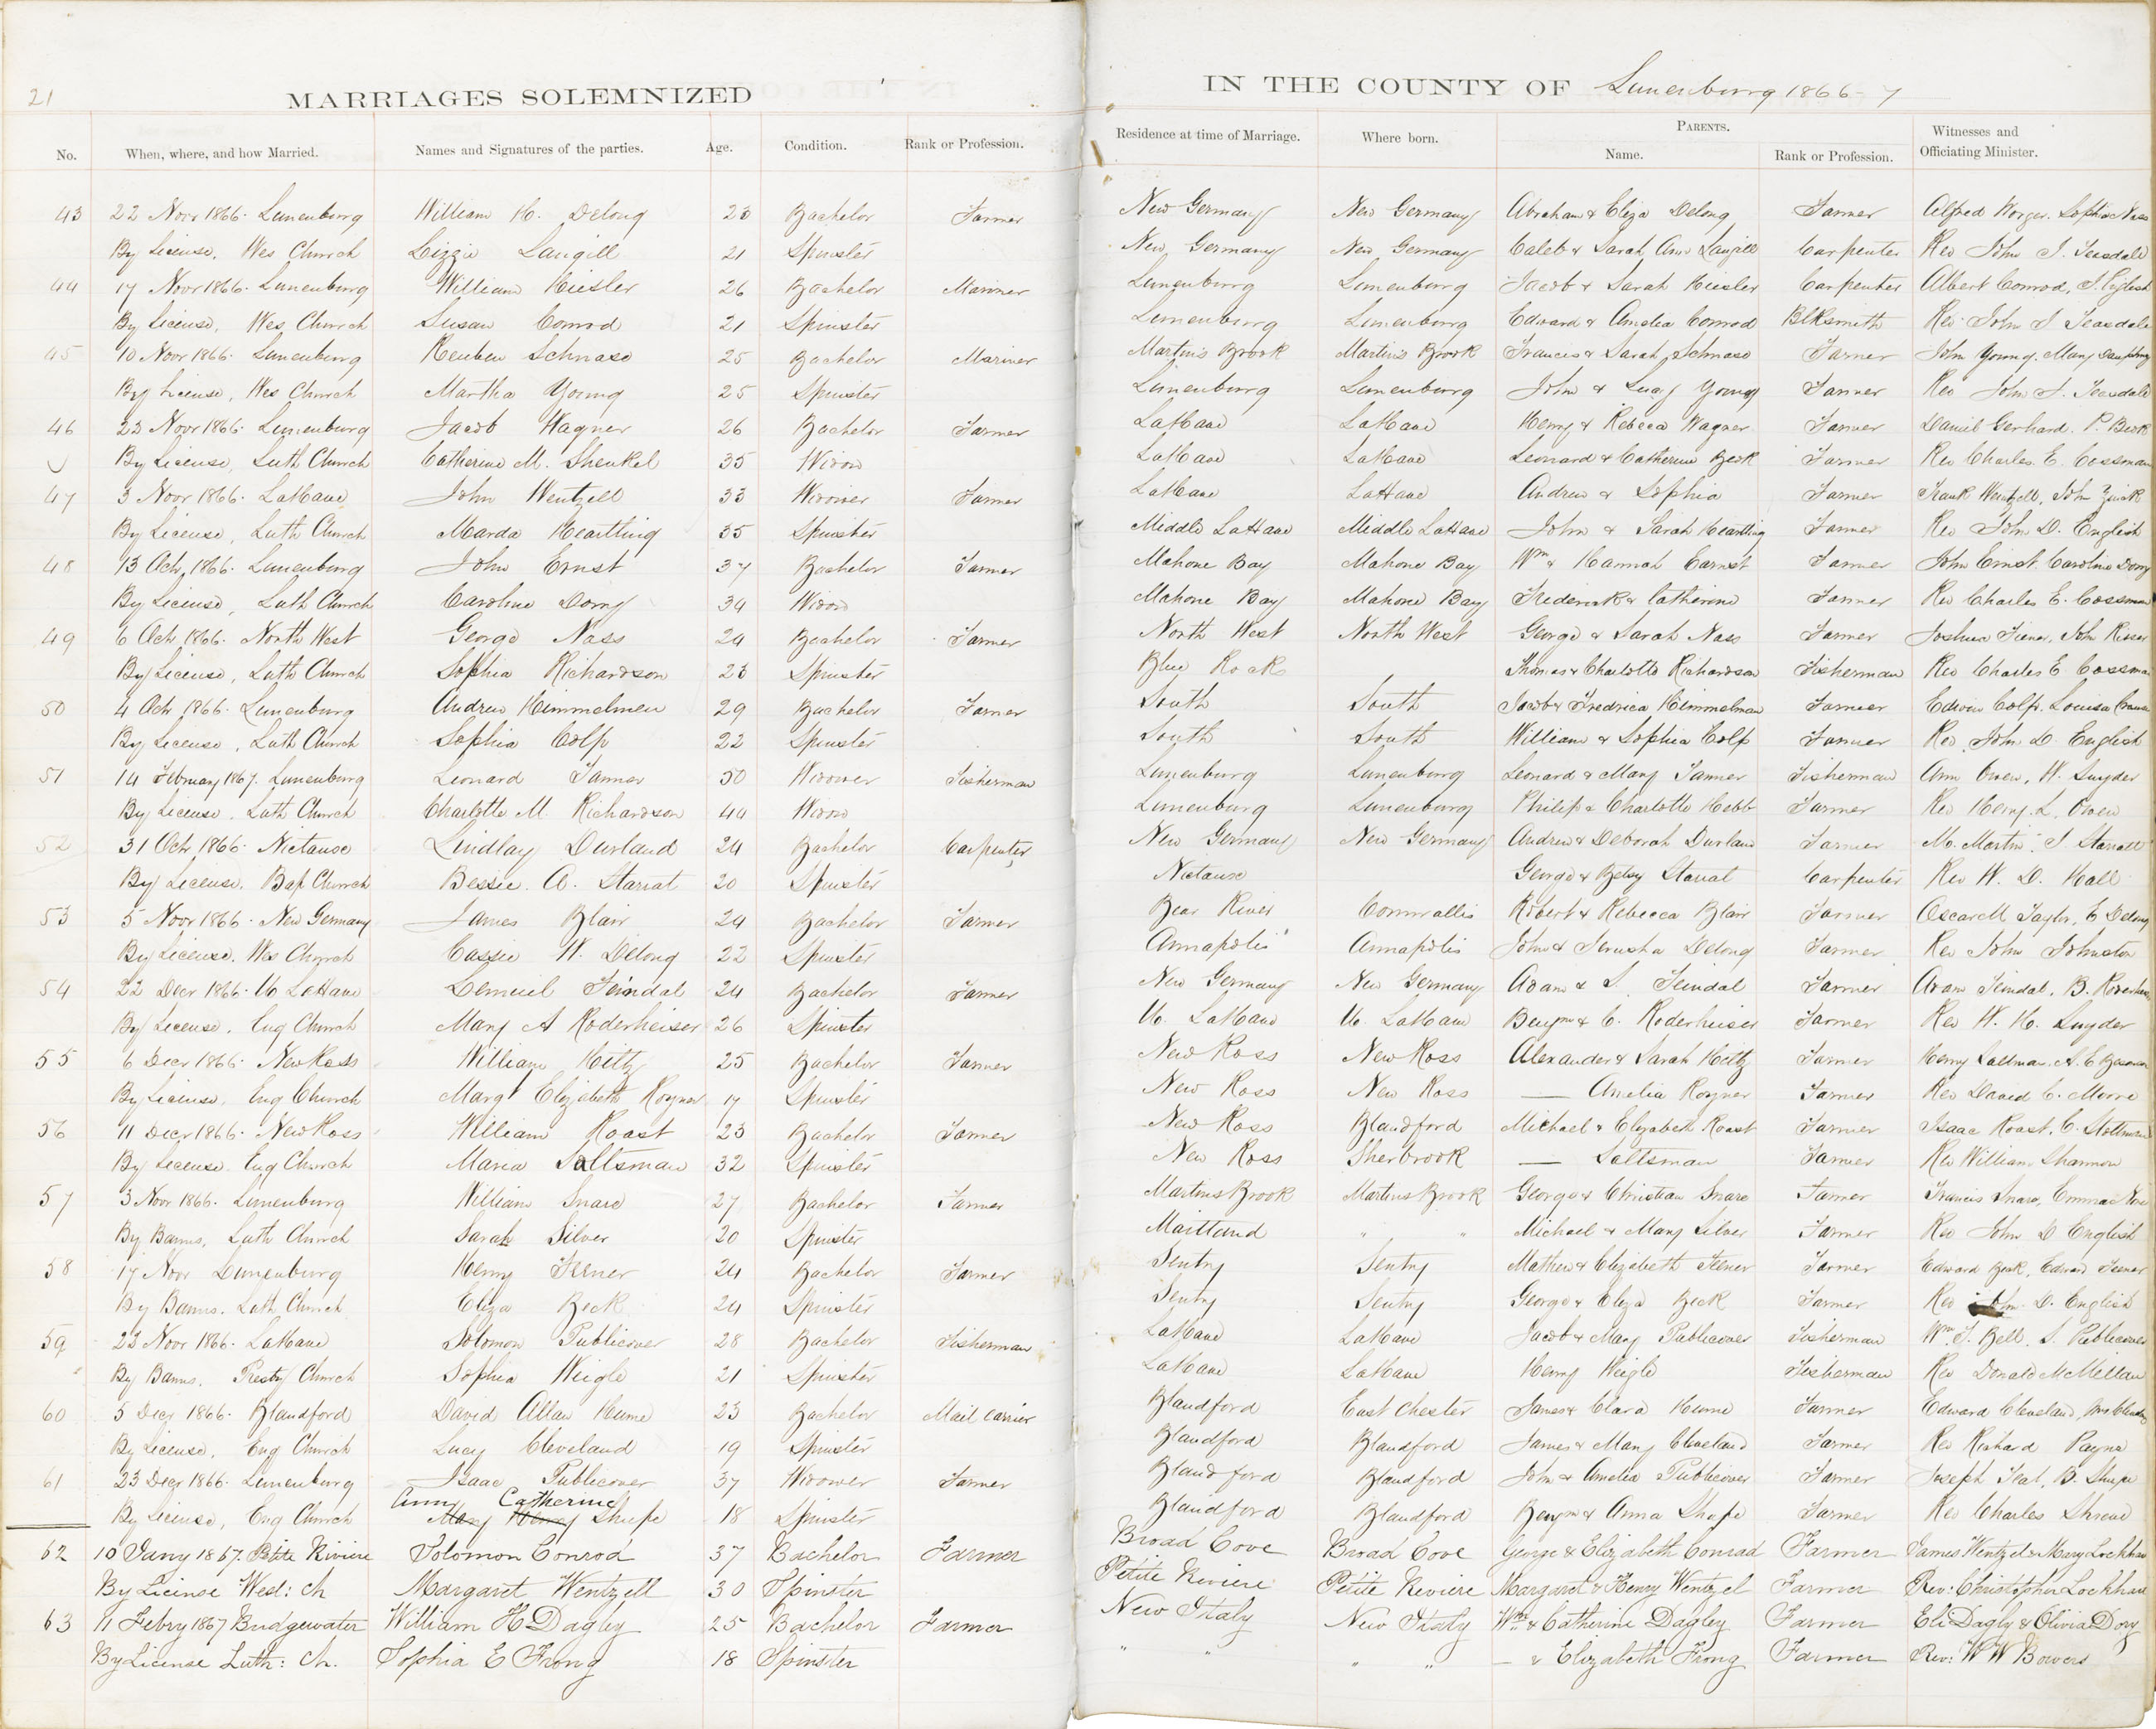 21
MARRIAGES SOLEMNIZED
IN THE COUNTY OF Lunenburg 1866-7
No. When, where, and how Married. Names and Signatures of the parties. Age. Condition. Rank or Profession. Residence at time of Marriage. Where born. PARENTS. Name. Rank or Profession. Witnesses and Officiating Minister.
43 22 Novr 1866. Lunenburg William H. Delong 23 Bachelor Farmer New Germany New Germany Abraham & Eliza Delong Farmer Alfred Worger. Sophia Nass
By License, Wes Church Lizzie Langill 21 Spinster New Germany New Germany Caleb & Sarah Ann Langill Carpenter Rev John S. Teasdale
44 17 Novr 1866. Lunenburg William Hiesler 26 Bachelor Mariner Lunenburg Lunenburg Jacob & Sarah Hiesler Carpenter Albert Conrod,
By License, Wes Church Susan Conrod 21 Spinster Lunenburg Lunenburg Edward & Amelia Conrod Blksmith Rev John S Teasdale
45 10 Novr 1866. Lunenburg Reuben Schnase 25 Bachelor Mariner Martin's Brook Martin's Brook Francis & Sarah Schnase Farmer John Young. Mary
By License, Wes Church Martha Young 25 Spinster Lunenburg Lunenburg John & Lucy Young Farmer Rev John S. Teasdale
46 23 Novr 1866. Lunenburg Jacob Wagner 26 Bachelor Farmer LaHave LaHave Henry & Rebeca Wagner Farmer Daniel Gerhard. P. Beck
By License, Luth Church Catherine M. Shenkel 35 Widow LaHave LaHave Leonard & Catherine Beck Farmer Rev Charles. E. Cossman
47 3 Novr 1866. LaHave John Wentzell 33 Widower Farmer LaHave LaHave Andrew & Sophia Farmer Frank Wentzell, John Zwick
By License, Luth Church Marda Heartling 35 Spinster Middle LaHave Middle LaHave John & Sarah Heartling Farmer Rev John D. English
48 13 Octr 1866. Lunenburg John Ernst 37 Bachelor Farmer Mahone Bay Mahone Bay Wm & Hannah Earnst Farmer John Ernst. Caroline Dorey
By License, Luth Church Caroline Dorey 34 Widow Mahone Bay Mahone Bay Frederick & Catherine Farmer Rev Charles E. Cossman
49 6 Octr 1866. North West George Nass 24 Bachelor Farmer North West North West George & Sarah Nass Farmer Joshua Fiener, John Risser
By License, Luth Church Sophia Richardson 23 Spinster Blue Rock Thomas & Charlotte Richardson Fisherman Rev Charles E Cossman
50 4 Octr 1866. Lunenburg Andrew Himmelmen 29 Bachelor Farmer South South Jacob & Fredrica Himmelman Farmer Edwin Colp. Louisa
By License, Luth Church Sophia Colp 22 Spinster South South William & Sophia Colp Farmer Rev John D. English
51 14 February 1867. Lunenburg Leonard Tanner 50 Widower Fisherman Lunenburg Lunenburg Leonard & Mary Tanner Fisherman Ann Owen, W. Snyder
By License, Luth Church Charlotte M. Richardson 44 Widow Lunenburg Lunenburg Philip & Charlotte Hebb Farmer Rev Henry L. Owen
52 31 Octr 1866. Nictause Lindlay Durland 24 Bachelor Carpenter New Germany New Germany Andrew & Deborah Durlan Farmer M. Martin. S Starratt
By License. Bap Church Bessie. A. Starrat 20 Spinster Nictaux George & Betsy Starrat Carpenter Rev W. D. Hall
53 5 Novr 1866. New Germany James Blair 24 Bachelor Farmer Bear River Cornwallis Robert & Rebecca Blair Farmer Oscar M Taylor, E Delong
By License. Wes Church Cassie W. Delong 22 Spinster Annapolis Annapolis John & Jerusha Delong Farmer Rev John Johnston
54 22 Decr 1866. U. LaHave Lemuel Feindal 24 Bachelor Farmer New Germany New Germany Adam & S. Feindal Farmer Adam Feindal, B.
By License, Eng Church Mary A Roderheiser 26 Spinster U. LaHave U. LaHave Benjm & C. Roderheiser Farmer Rev W. H. Snyder
55 6 Decr 1866. New Ross William Hiltz 25 Bachelor Farmer New Ross New Ross Alexander & Sarah Hiltz Farmer
By License, Eng Church Margt Elizabeth Royner 17 Spinster New Ross New Ross — Amelia Royner Farmer Rev David C. Moore
56 11 Decr 1866. New Ross William Roast 23 Bachelor Farmer New Ross Blandford Michael & Elizabeth Roast Farmer Isaac Roast.
By License, Eng Church Maria Saltsman 32 Spinster New Ross Sherbrook — Saltsman Farmer Rev William Shannon
57 3 Novr 1866. Lunenburg William Snare 27 Bachelor Farmer Martins Brook Martins Brook George & Christian Snare Farmer Francis Snare,
By Banns, Luth Church Sarah Silver 20 Spinster Maitland " " Michael & Mary Silver Farmer Rev John D English
58 17 Novr Lunenburg Henry Feener 24 Bachelor Farmer Sentry Sentry Mathew & Elizabeth Feener Farmer Edward Beck, Edward Feener
By Banns. Luth Church Eliza Beck 24 Spinster Sentry Sentry George & Eliza Beck Farmer Rev John D. English
59 23 Novr 1866. LaHave Solomon Publicover 28 Bachelor Fisherman LaHave LaHave Jacob & Mary Publicover Fisherman Wm. T. Bell. S. Publicover
By Banns. Presty Church Sophia Weigle 21 Spinster LaHave LaHave Henry Weigle Fisherman Rev Donald McMillan
60 5 Decr 1866. Blandford David Allan Hume 23 Bachelor Mail Carrier Blandford East Chester James & Clara Hume Farmer Edward Cleveland,
By License, Eng Church Lucy Cleveland 19 Spinster Blandford Blandford James & Mary Cleveland Farmer Rev Richard Payne
61 23 Decr 1866. Lunenburg Isaac Publicover 37 Widower Farmer Blandford Blandford John & Amelia Publicover Farmer Joseph Teal, B. Shupe
Anny Catherine
By License, Eng Church Mary Henry Shupe 18 Spinster Blandford Blandford Benjm & Anna Shupe Farmer Rev Charles Shreve
62 10 Jany 1867. Petite Riviere Solomon Conrod 37 Bachelor Farmer Broad Cove Broad Cove George & Elizabeth Conrad Farmer James Wentzel & Mary Lockhart
By License Wesl: Ch Margaret Wentzell 30 Spinster Petite Riviere Petite Riviere Margaret & Henry Wentzel Farmer Rev: Christopher Lockhart
63 11 Febry 1867 Bridgewater William H Dagley 25 Bachelor Farmer New Italy New Italy Wm & Catherine Dagley Farmer Eli Dagly & Olivia Dory
By License Luth: Ch. Sophia E Frong 18 Spinster " " " — & Elizabeth Frong Farmer Rev: W W Bowers